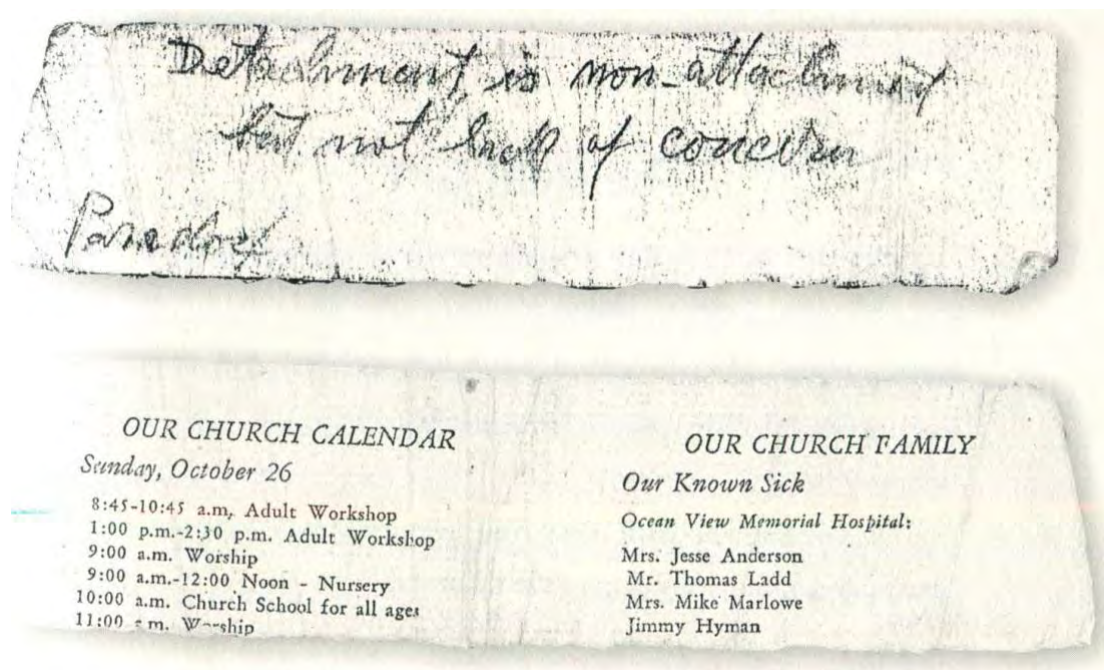 Detachment is non-attachment
but not lack of concern
Paradox
OUR CHURCH CALENDAR
Sunday, October 26
8:45-10:45 a.m. Adult Workshop
1:00 p.m.-2:30 p.m. Adult Workshop
9:00 a.m. Worship
9:00 a.m.-12:00 Noon - Nursery
10:00 a.m. Church School for all ages
11:00 a.m. Worship
OUR CHURCH FAMILY
Our Known Sick
Ocean View Memorial Hospital:
Mrs. Jesse Anderson
Mr. Thomas Ladd
Mrs. Mike Marlowe
Jimmy Hyman